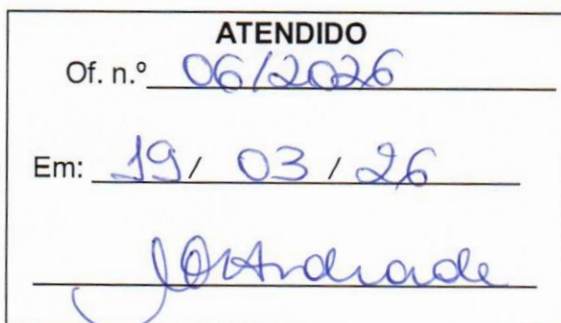 ATENDIDO
Of. n.º 06/2026
Em: 19/ 03 / 26
Andrade